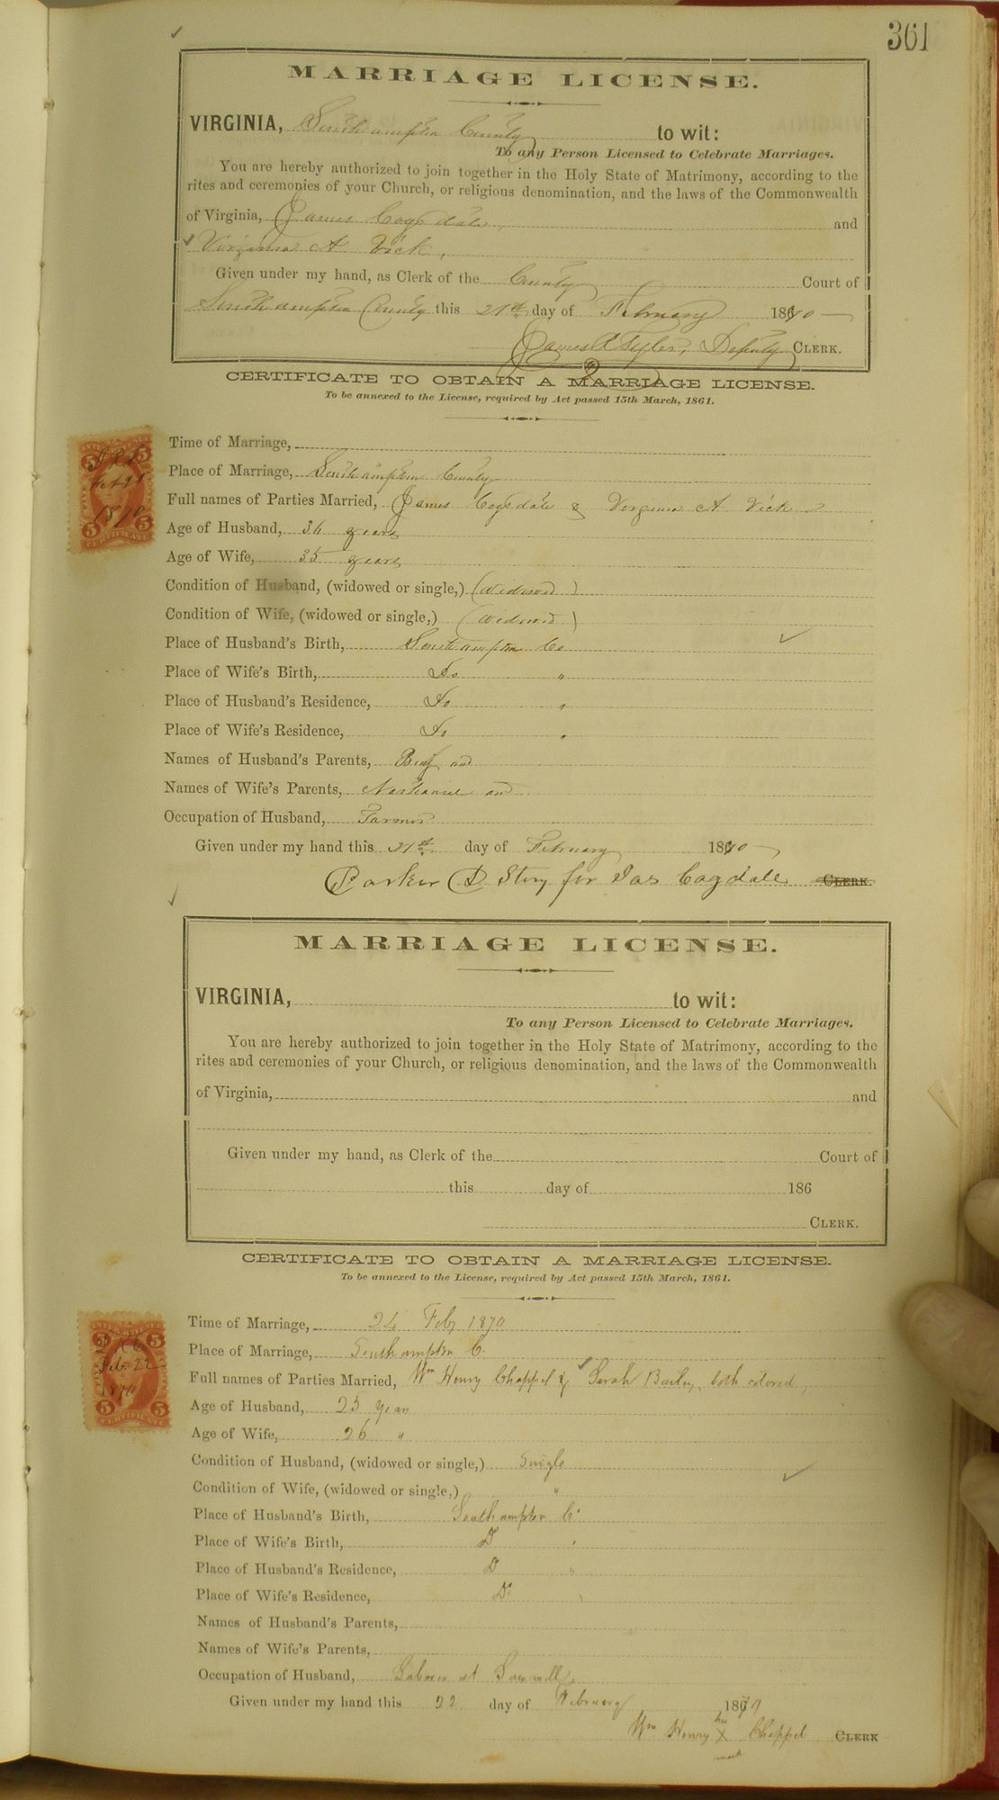 361
MARRIAGE LICENSE.
VIRGINIA, Southampton County to wit:
To any Person Licensed to Celebrate Marriages.
You are hereby authorized to join together in the Holy State of Matrimony, according to the
rites and ceremonies of your Church, or religious denomination, and the laws of the Commonwealth
of Virginia, James Cogsdale and
Virginia A Vick,
Given under my hand, as Clerk of the County Court of
Southampton County this 21st day of February 1870
James A Tyler, Deputy CLERK.
CERTIFICATE TO OBTAIN A MARRIAGE LICENSE.
To be annexed to the License, required by Act passed 15th March, 1861.
Time of Marriage,
Place of Marriage, Southampton County
Full names of Parties Married, James Cogsdale & Virginia A Vick
Age of Husband, 36 years
Age of Wife, 35 years
Condition of Husband, (widowed or single,) (widowed)
Condition of Wife, (widowed or single,) (widowed)
Place of Husband's Birth, Southampton Co
Place of Wife's Birth, Do "
Place of Husband's Residence, Do "
Place of Wife's Residence, Do "
Names of Husband's Parents, Benj and
Names of Wife's Parents, Nathaniel and
Occupation of Husband, Farmer
Given under my hand this 21st day of February 1870
Parker D Story for Jas Cogdale CLERK.
MARRIAGE LICENSE.
VIRGINIA, to wit:
To any Person Licensed to Celebrate Marriages.
You are hereby authorized to join together in the Holy State of Matrimony, according to the
rites and ceremonies of your Church, or religious denomination, and the laws of the Commonwealth
of Virginia, and
Given under my hand, as Clerk of the Court of
this day of 186
CLERK.
CERTIFICATE TO OBTAIN A MARRIAGE LICENSE.
To be annexed to the License, required by Act passed 15th March, 1861.
Time of Marriage, 24 Feby 1870
Place of Marriage, Southampton C.
Full names of Parties Married, Wm Henry Chappel & Sarah Bailey, both colored,
Age of Husband, 25 years
Age of Wife, 26 "
Condition of Husband, (widowed or single,) Single
Condition of Wife, (widowed or single,) "
Place of Husband's Birth, Southampton Co
Place of Wife's Birth, Do "
Place of Husband's Residence, Do "
Place of Wife's Residence, Do "
Names of Husband's Parents,
Names of Wife's Parents,
Occupation of Husband, Laborer at Sawmill,
Given under my hand this 22 day of February 1870
Wm Henry his X mark Chappel CLERK